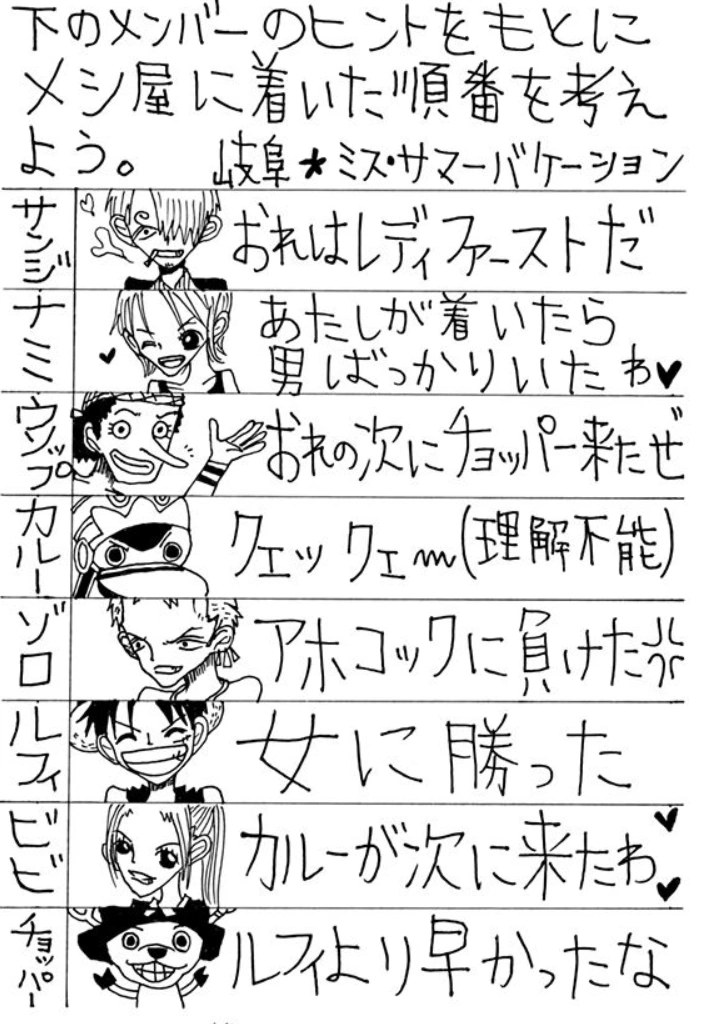 下のメンバーのヒントをもとに
メシ屋に着いた順番を考え
よう。 岐阜★ミス・サマーバケーション
サンジ
おれはレディファーストだ
ナミ
あたしが着いたら
男ばっかりいたわ♥
ウソップ
おれの次にチョッパー来たぜ
カルー
クエックエ〜(理解不能)
ゾロ
アホコックに負けた
ルフィ
女に勝った
ビビ
カルーが次に来たわ♥
チョッパー
ルフィより早かったな